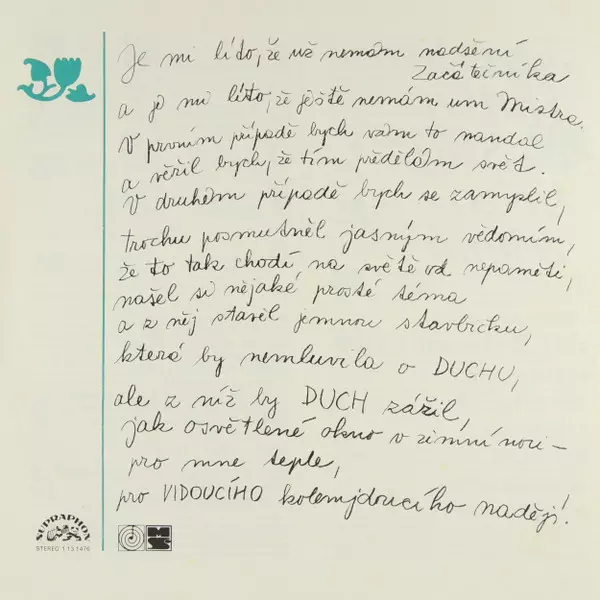 Je mi líto, že už nemám nadšení
Začátečníka
a je mi líto, že ještě nemám um Mistra.
V prvním případě bych vám to nandal
a věřil bych, že tím předělám svět.
V druhém případě bych se zamyslil,
trochu posmutněl jasným vědomím,
že to tak chodí na světě od nepaměti,
našel si nějaké prosté téma
a z něj stavěl jemnou stavbičku,
která by nemluvila o DUCHU,
ale z níž by DUCH zářil,
jak osvětlené okno v zimní noci –
pro mne teple,
pro VIDOUCÍHO kolemjdoucího nadějí!
SUPRAPHON
STEREO 1 13 1476
MS